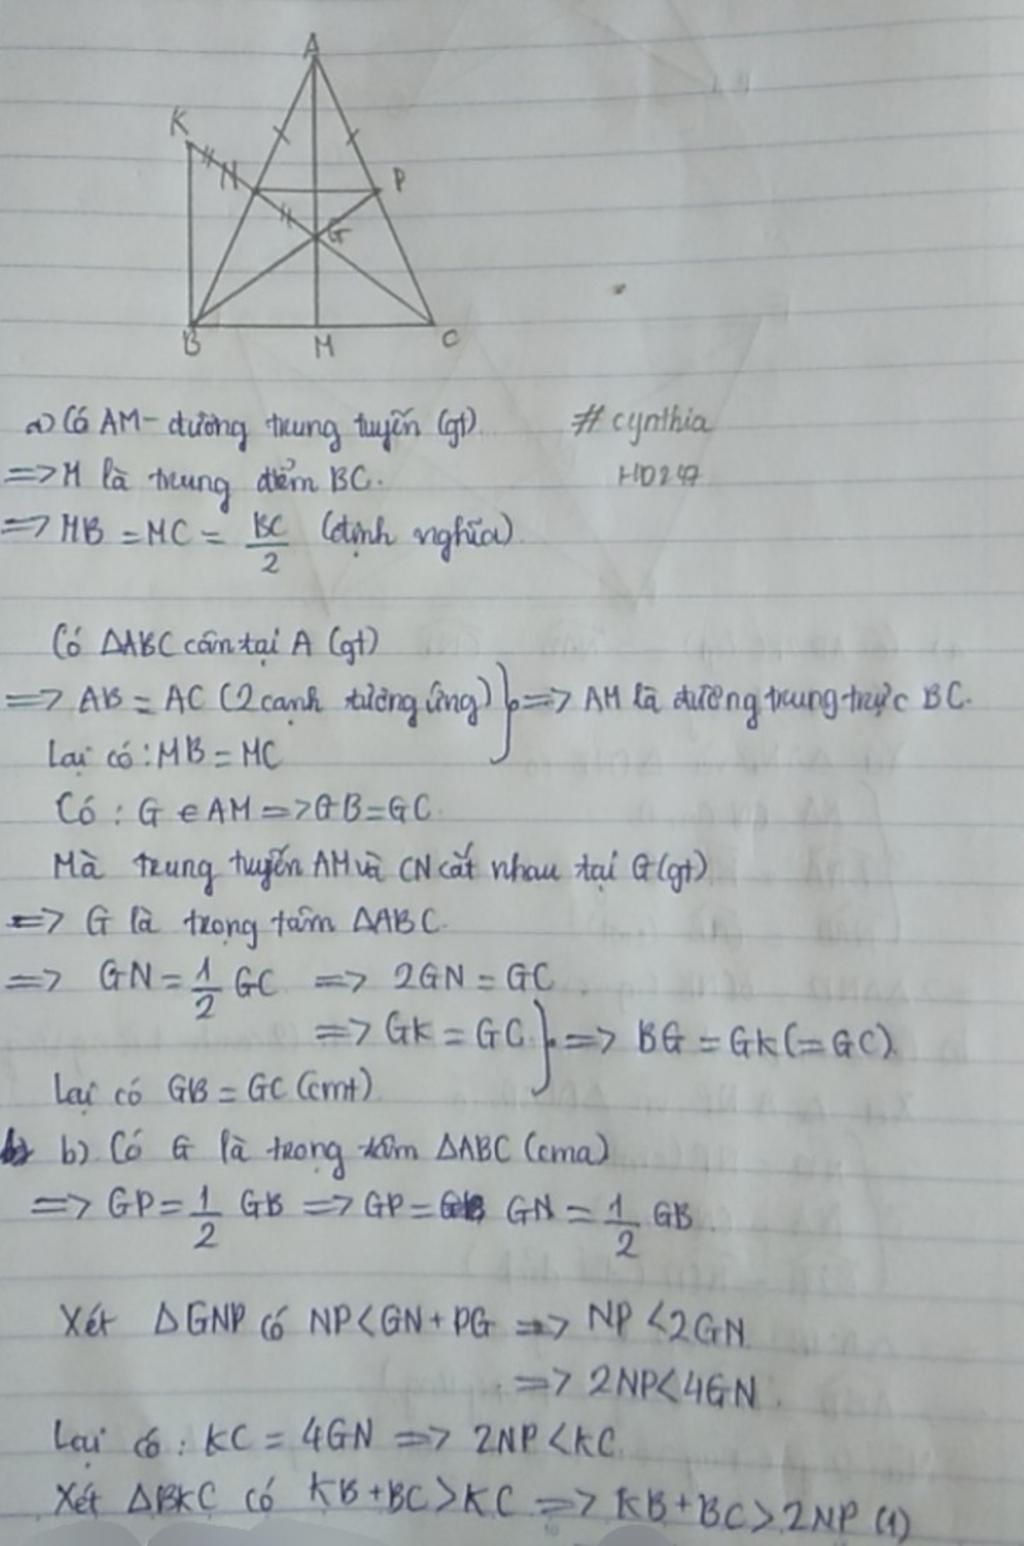 A
K
N
P
G
B
M
C
a) Có AM - đường trung tuyến (gt)
#cynthia
=> M là trung điểm BC.
HD247
=> MB = MC = BC/2 (định nghĩa)
Có ΔABC cân tại A (gt)
=> AB = AC (2 cạnh tương ứng) } => AM là đường trung trực BC.
Lại có : MB = MC
Có : G ∈ AM => GB = GC
Mà trung tuyến AM và CN cắt nhau tại G (gt)
=> G là trọng tâm ΔABC.
=> GN = 1/2 GC => 2GN = GC
=> GK = GC } => BG = GK (= GC)
Lại có GB = GC (cmt)
b) Có G là trọng tâm ΔABC (cma)
=> GP = 1/2 GB => GP = GN = 1/2 GB
Xét ΔGNP có NP < GN + PG => NP < 2GN
=> 2NP < 4GN
Lại có : KC = 4GN => 2NP < KC
Xét ΔBKC có KB + BC > KC => KB + BC > 2NP (1)